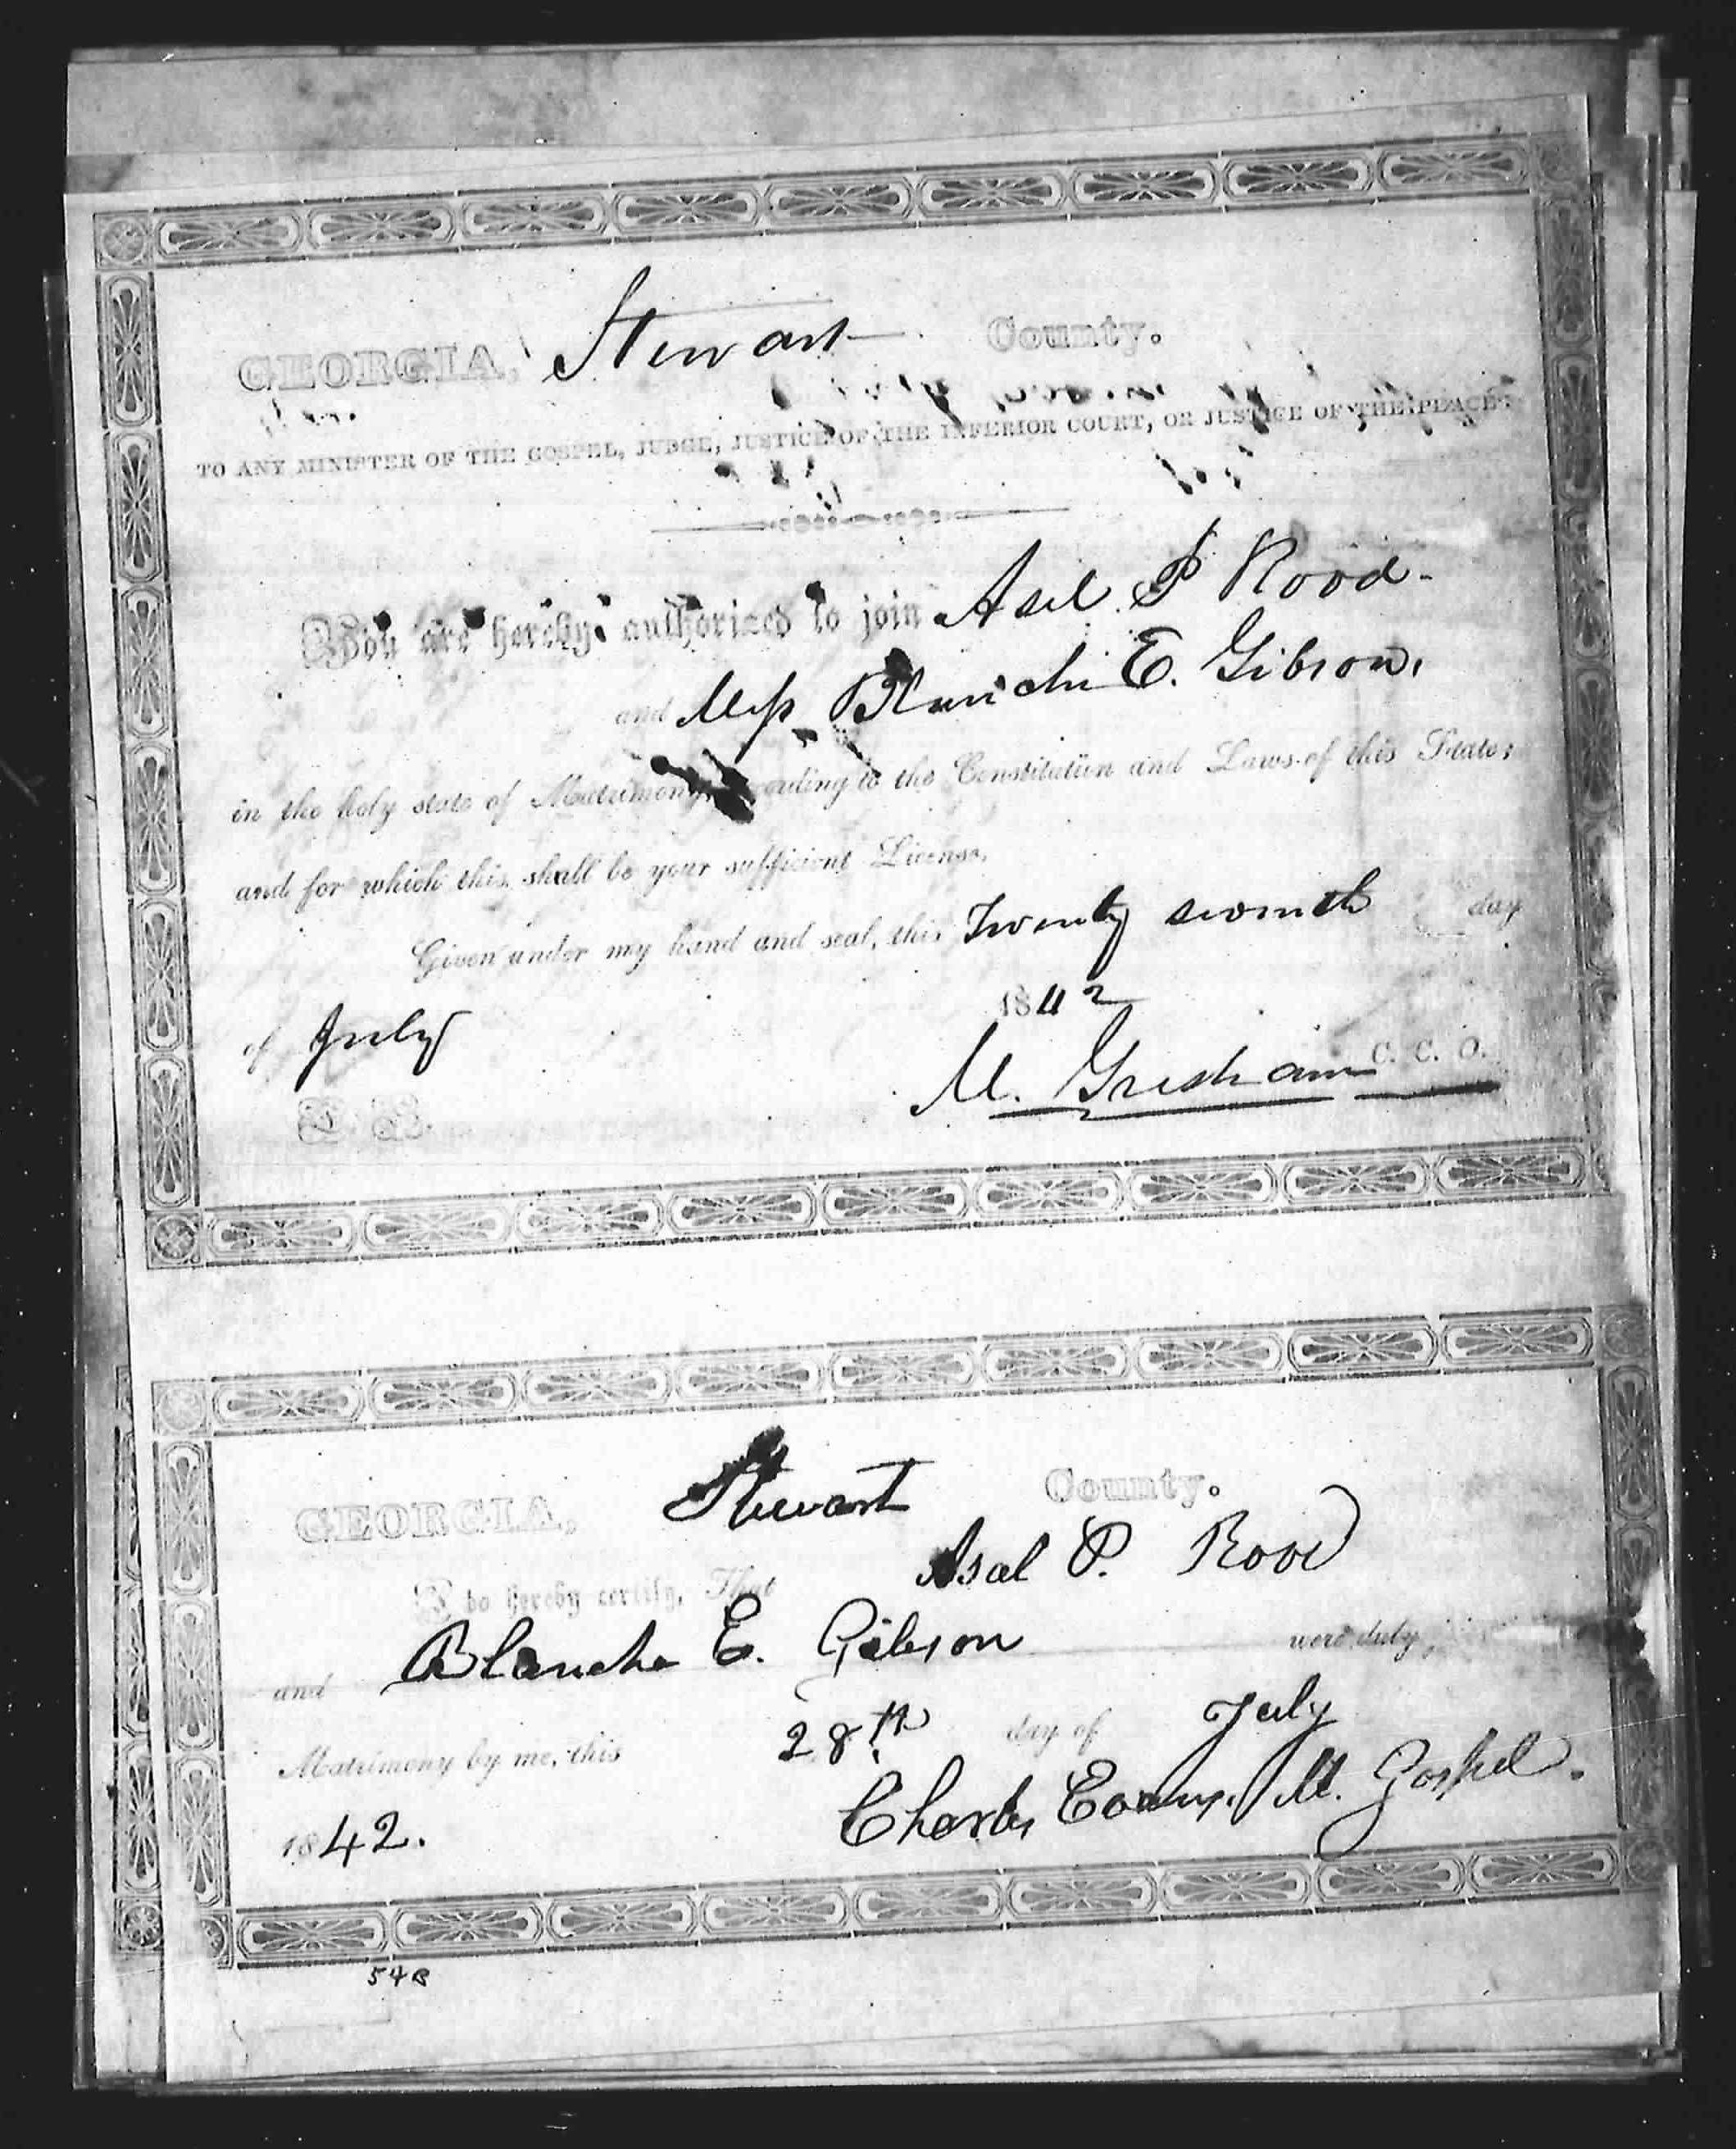 GEORGIA, Stewart County.
TO ANY MINISTER OF THE GOSPEL, JUDGE, JUSTICE OF THE INFERIOR COURT, OR JUSTICE OF THE PEACE:
You are hereby authorized to join Asel P Rood
and Miss Blanche E. Gibson,
in the holy state of Matrimony, according to the Constitution and Laws of this State;
and for which this shall be your sufficient License.
Given under my hand and seal, this Twenty seventh day
of July 1842
M. Gresham C. C. O.
L. S.
GEORGIA, Stewart County.
I do hereby certify, That Asal P. Rood
and Blanche E. Gibson were duly
Matrimony by me, this 28th day of July
1842. Charles Evans, M. Gospel.
54B